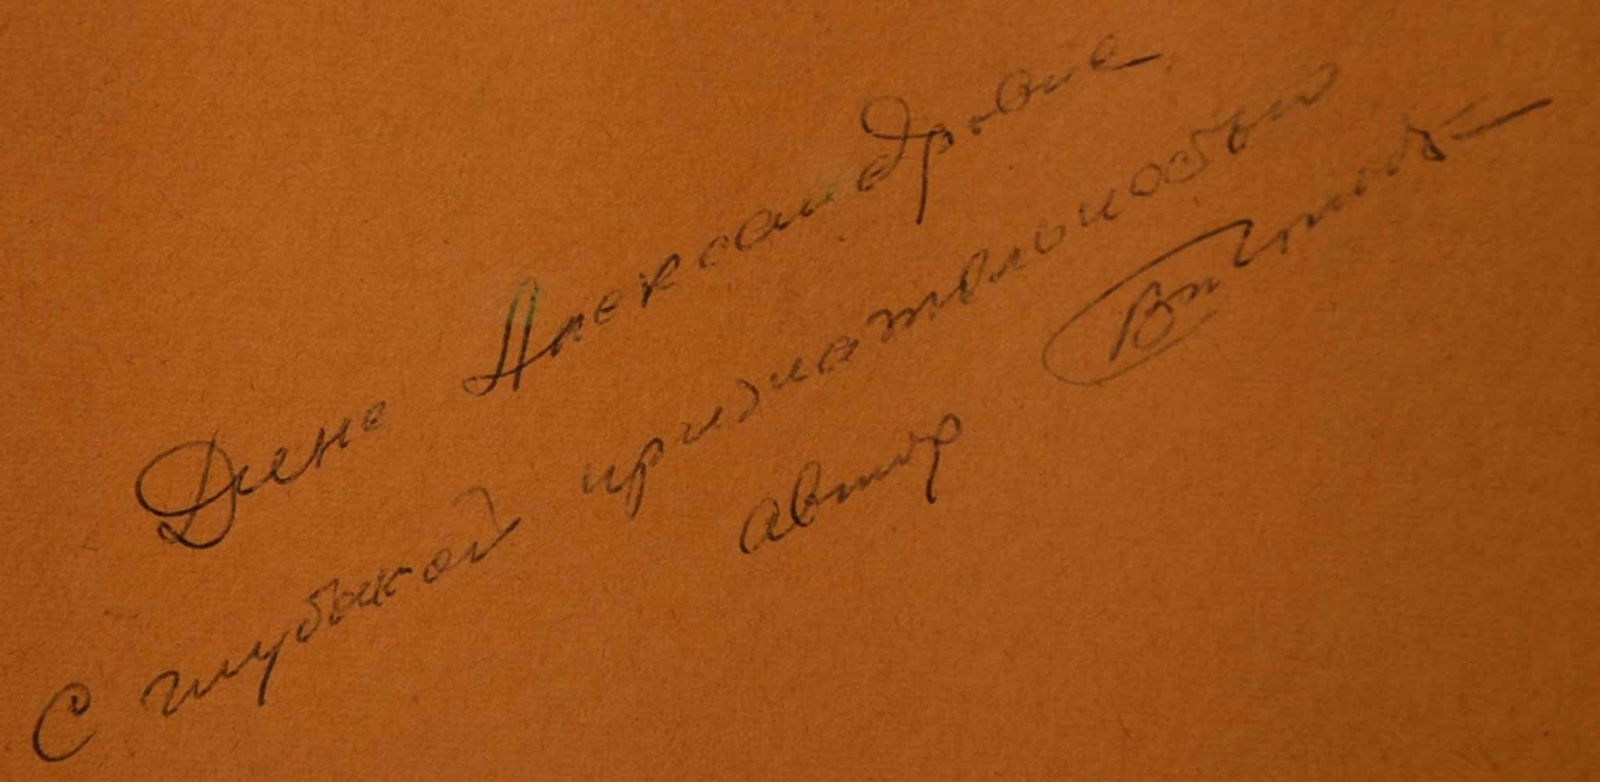 Дине Александровне
С глубокой признательностью
автор